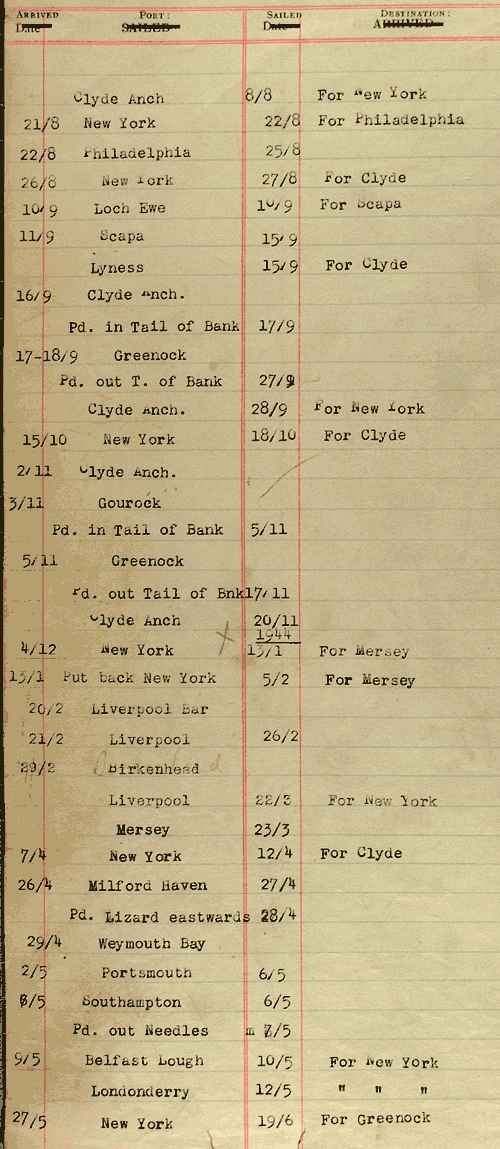 ARRIVED PORT: SAILED DESTINATION:
Date SAILED Date ARRIVED
Clyde Anch 8/8 For New York
21/8 New York 22/8 For Philadelphia
22/8 Philadelphia 25/8
26/8 New York 27/8 For Clyde
10/9 Loch Ewe 10/9 For Scapa
11/9 Scapa 15/9
Lyness 15/9 For Clyde
16/9 Clyde Anch.
Pd. in Tail of Bank 17/9
17-18/9 Greenock
Pd. out T. of Bank 27/9
Clyde Anch. 28/9 For New York
15/10 New York 18/10 For Clyde
2/11 Clyde Anch.
3/11 Gourock
Pd. in Tail of Bank 5/11
5/11 Greenock
Pd. out Tail of Bnk17/11
Clyde Anch 20/11
1944
4/12 New York 13/1 For Mersey
13/1 Put back New York 5/2 For Mersey
20/2 Liverpool Bar
21/2 Liverpool 26/2
29/2 Birkenhead
Liverpool 22/3 For New York
Mersey 23/3
7/4 New York 12/4 For Clyde
26/4 Milford Haven 27/4
Pd. Lizard eastwards 28/4
29/4 Weymouth Bay
2/5 Portsmouth 6/5
6/5 Southampton 6/5
Pd. out Needles 7/5
9/5 Belfast Lough 10/5 For New York
Londonderry 12/5 " " "
27/5 New York 19/6 For Greenock